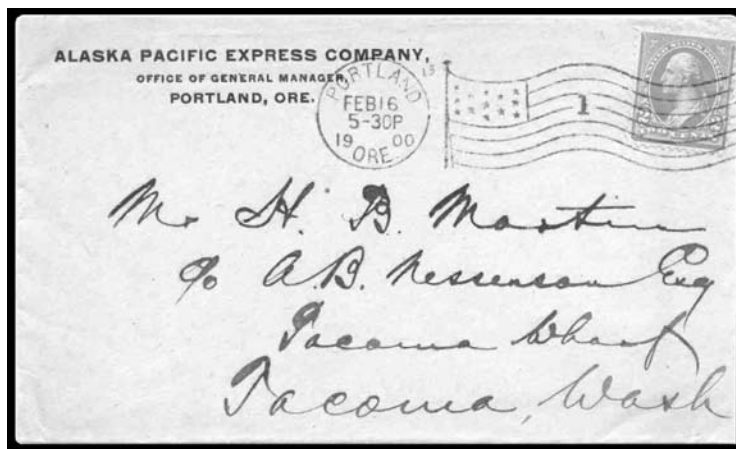 ALASKA PACIFIC EXPRESS COMPANY,
OFFICE OF GENERAL MANAGER,
PORTLAND, ORE.
PORTLAND
FEB 16
5-30P
19 00
ORE.
1
Mr H. B. Martin
c/o A.B. Nessenson Esq
Tacoma Wharf
Tacoma, Wash